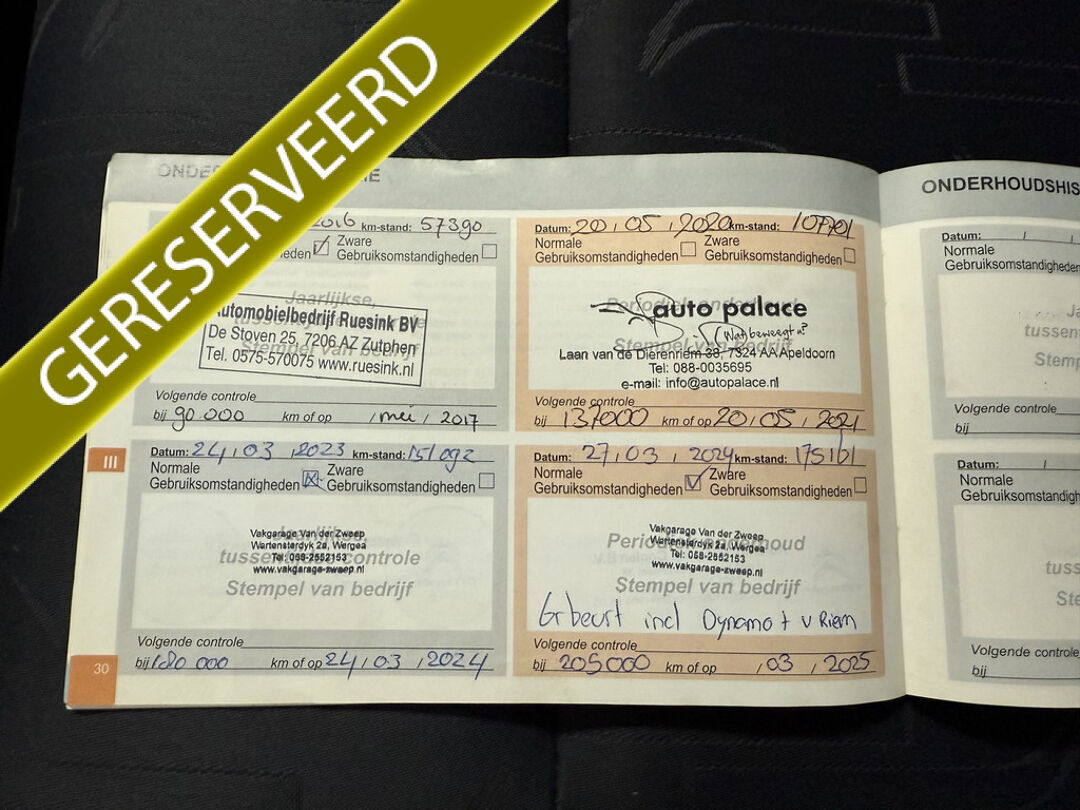 GERESERVEERD
ONDERHOUDSHIS
2016 km-stand: 57390
Zware
Gebruiksomstandigheden
Jaarlijkse
Automobielbedrijf Ruesink BV
De Stoven 25, 7206 AZ Zutphen
Tel. 0575-570075 www.ruesink.nl
Volgende controle
bij 90.000 km of op / mei / 2017
Datum: 20 / 05 / 2020 km-stand:
Normale
Gebruiksomstandigheden
Zware
Gebruiksomstandigheden
Periodiek onderhoud
auto palace
Wat beweegt u?
Stempel van bedrijf
Laan van de Dierenriem 38, 7324 AA Apeldoorn
Tel: 088-0035695
e-mail: info@autopalace.nl
Volgende controle
bij 137000 km of op 20 / 05 / 2021
III
Datum: 24 / 03 / 2023 km-stand: 151092
Normale
Gebruiksomstandigheden
Zware
Gebruiksomstandigheden
Vakgarage Van der Zweep
Wartensterdyk 2a, Wergea
Tel: 058-2552153
tussentijdse controle
www.vakgarage-zweep.nl
Stempel van bedrijf
Volgende controle
bij 180 000 km of op 24 / 03 / 2024
30
Datum: 27 / 03 / 2024 km-stand: 175161
Normale
Gebruiksomstandigheden
Zware
Gebruiksomstandigheden
Vakgarage Van der Zweep
Periodiek onderhoud
Wartensterdyk 2a, Wergea
Tel: 058-2552153
www.vakgarage-zweep.nl
Stempel van bedrijf
Gr beurt incl Dynamo + v Riem
Volgende controle
bij 205000 km of op / 03 / 2025
Datum: / /
Normale
Gebruiksomstandigheden
Ja
tuss
Stemp
Volgende controle
bij
Datum: / /
Normale
Gebruiksomstandigheden
tuss
Ste
Volgende controle
bij